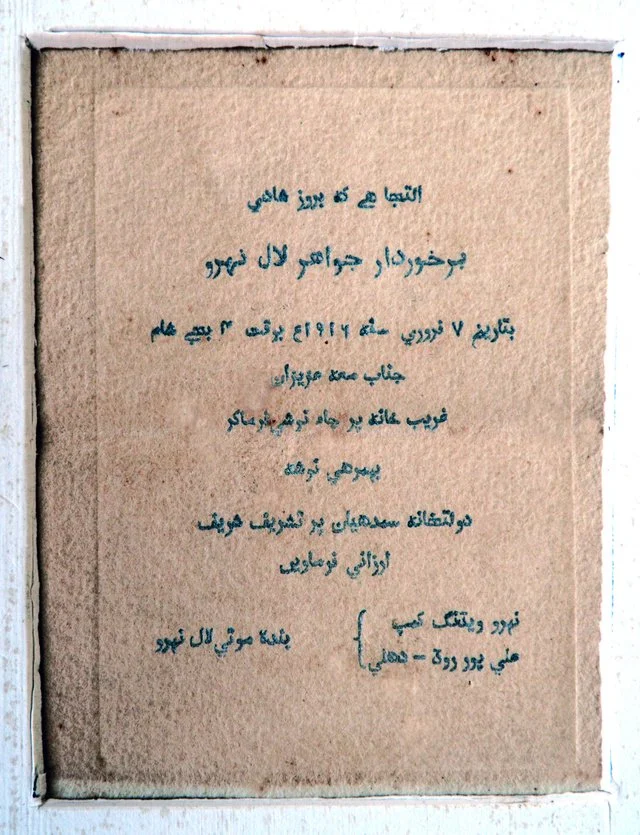 التجا هے که بروز شادي
برخوردار جواهر لال نهرو
بتاريخ ۷ فروري سنه ۱۹۱۶ع بوقت ۴ بجے شام
جناب معه عزيزان
غريب خانه پر چاه نوشي فرماکر
بهمرهي نوشه
دولتخانه سمدهيان پر تشريف شريف
ارزاني فرماويں
نهرو ويڈنگ کيمپ
علي پور روڈ - دهلي
بنده موتي لال نهرو